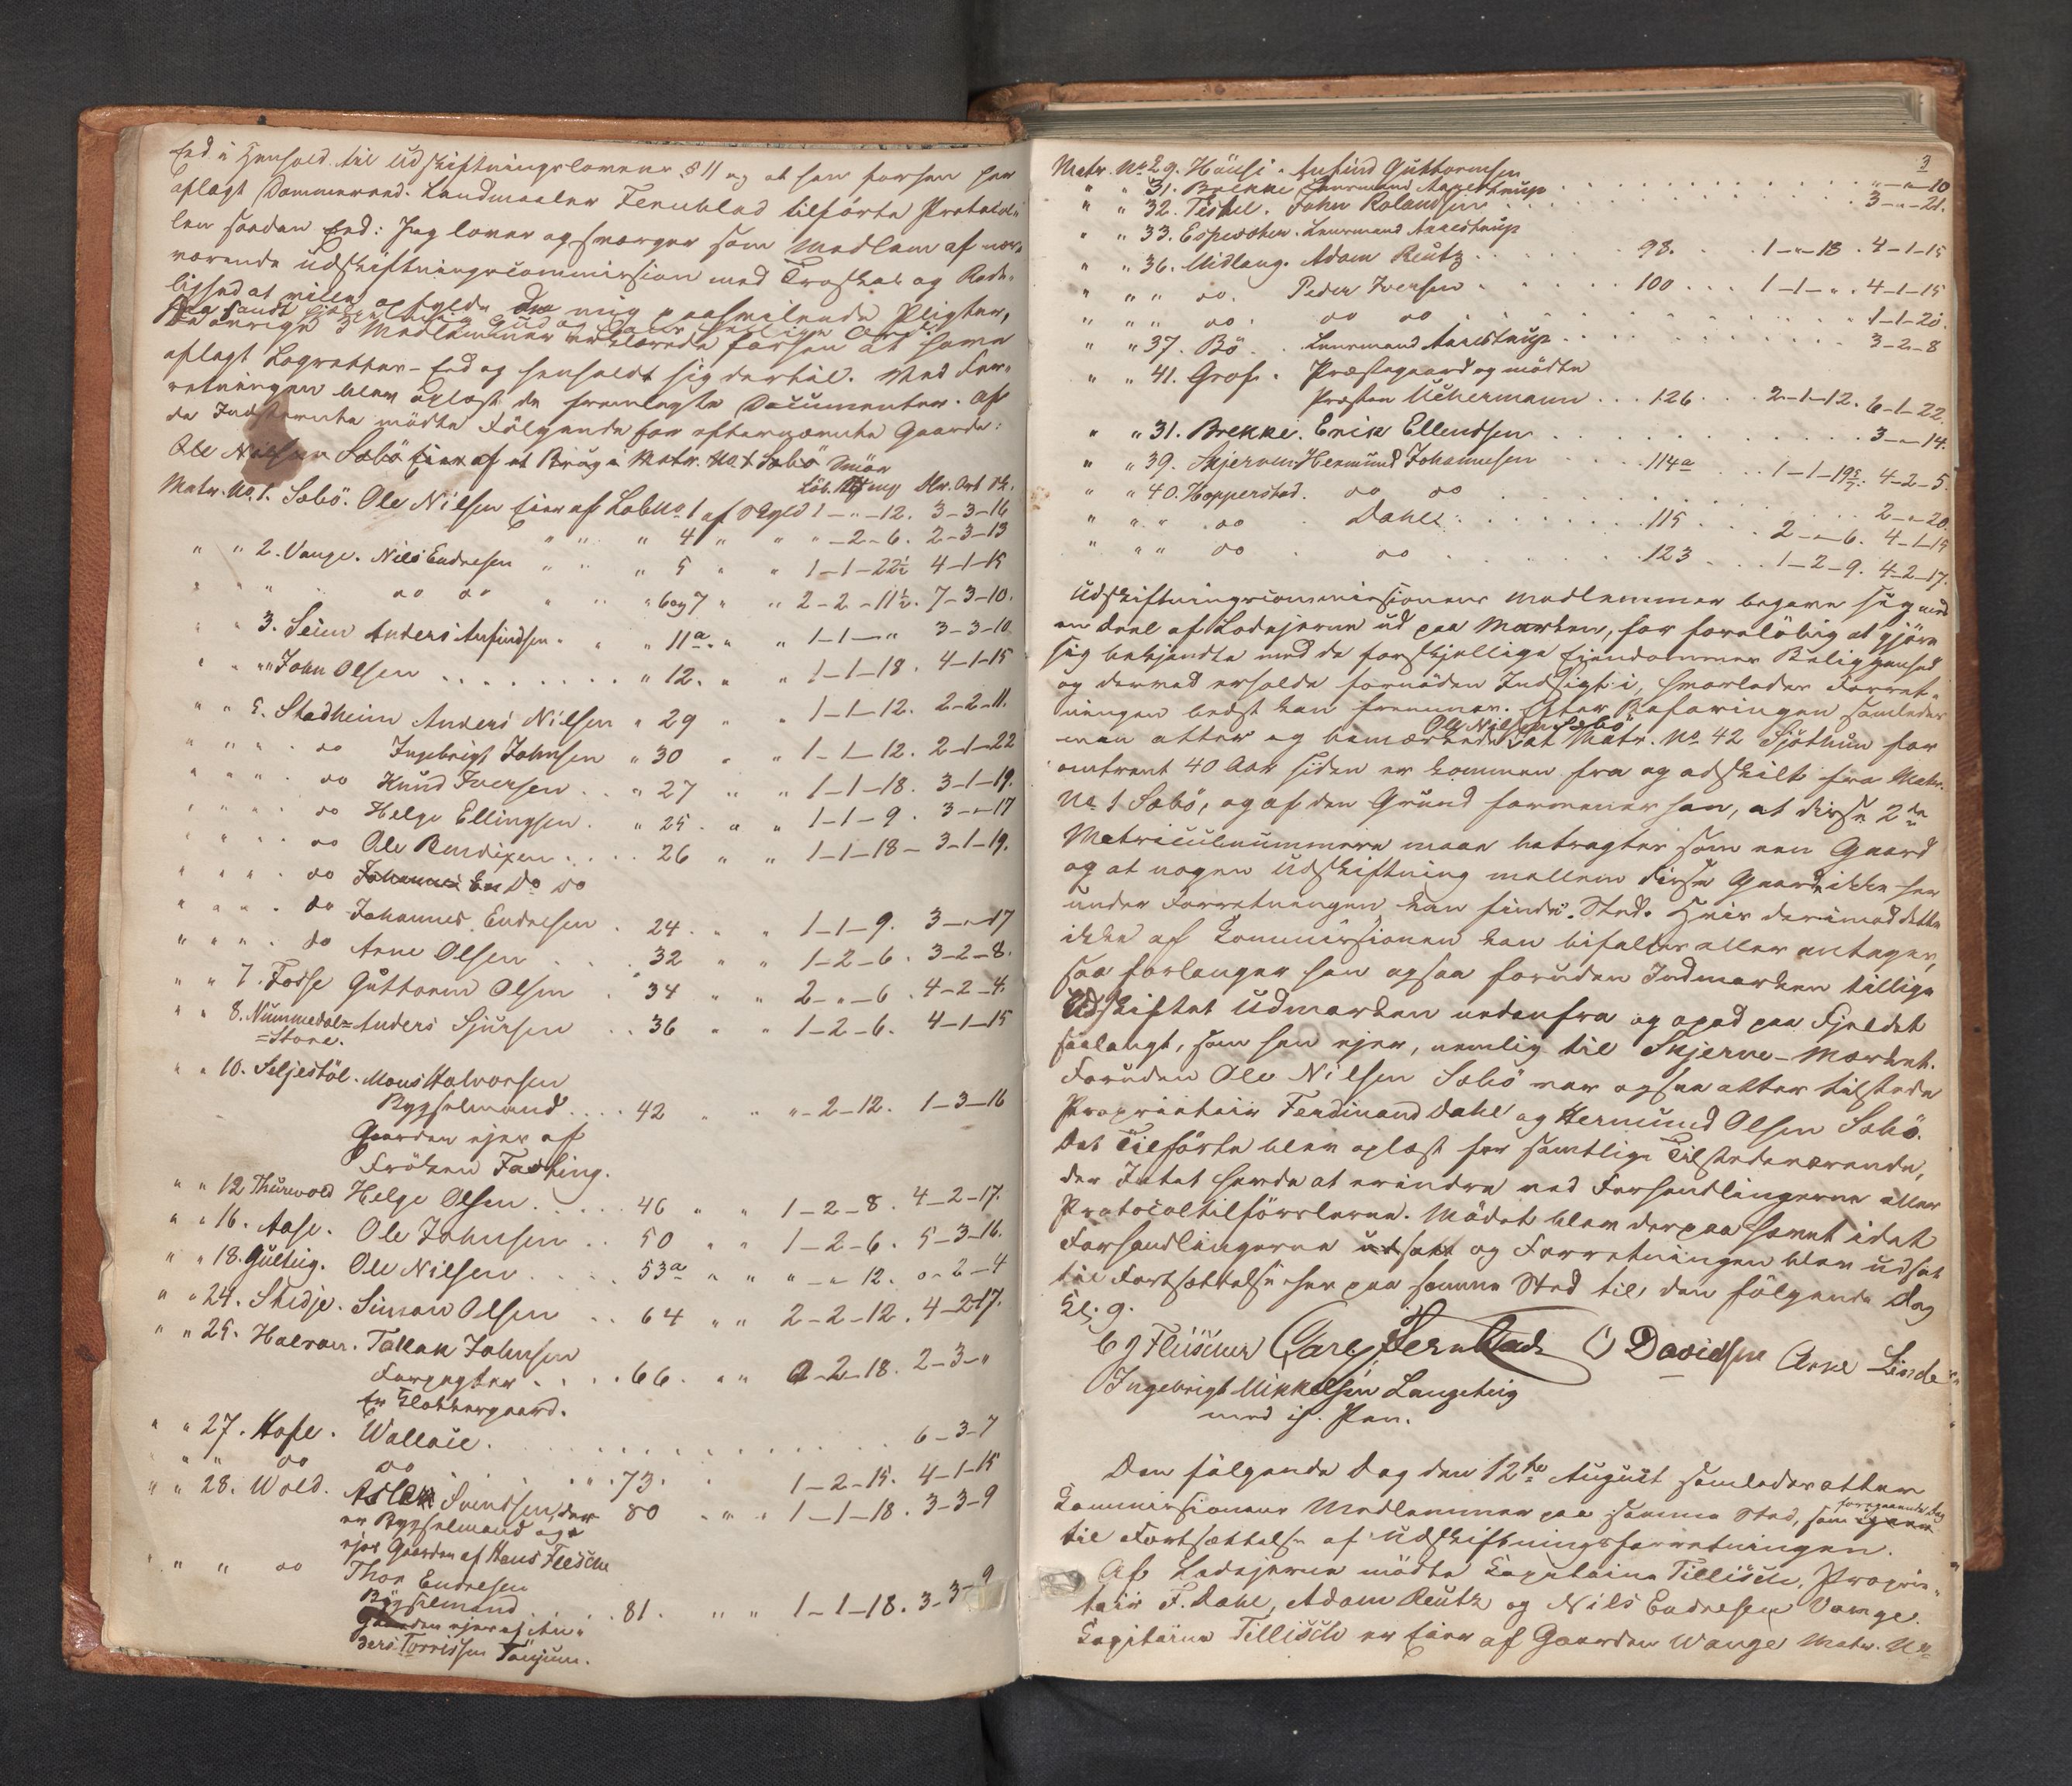 Eed i Henhold til Udskiftningslovens § 11 og at han forhen har
aflagt Dommereed. Landmaaler Fernblad tilførte Protocol-
len saadan Eed: Jeg lover og sværger som Medlem af nær-
værende Udskiftningscommission med Troskab og Rede-
lighed at ville opfylde de mig paahvilende Pligter,
saa sandt hjelpe mig Gud og Hans hellige Ord.
De øvrige 3 Medlemmer erklærede forhen at have
aflagt Lagrettes-Eed og henholdt sig dertil. Ved For-
retningen blev oplæst de fremlagte Documenter. Af
de Indstevnte mødte Følgende for efternævnte Gaarde:
Ole Nielsen Søbö Eier af et Brug i Matr. No 1 Søbö Smör
Löb. mg Dlr. Ort Sk.
Matr. No 1. Söbö. Ole Nilsen Eier af Lob No 1 af Skyld 1 - " - 12. 3-3-16
" " " 4 " " " - 2 - 6. 2-3-13
" " 2. Vange. Nils Endresen " " " 5 " " 1-1-22½ 4-1-15
" " " do do " " " 6 og 7 " " 2-2-11½. 7-3-10.
" " 3. Seim Anders Anfindsen " " " 11a " " 1-1-" 3-3-10
" " " " John Olsen . . . . . . . . " 12. " " 1-1-18. 4-1-15
" " 5. Stadheim Anders Nilsen " 29 " " 1-1-12. 2-2-11.
" " " . do Ingebrigt Johnsen " 30 " " 1-1-12. 2-1-22
" " " . do Knud Iversen . . " 27 " " 1-1-18. 3-1-19.
" " " . do Helge Ellingsen . " 25 . " " 1-1-9. 3-"-17
" " " . do Ole Bendixen . . . . 26 " " 1-1-18 - 3-1-19.
" " " . do Johannes En Do do
" " " . do Johannes Endresen . 24 . " " 1-1-9. 3-"-17
" " " . do Arne Olsen . . . 32 " " 1-2-6. 3-2-8.
" " 7. Fosse Guttorm Olsen . 34 " " 2-"-6. 4-2-4.
" " 8. Nummedal= Anders Sjursen . . 36 " " 1-2-6. 4-1-15
=Store.
" " 10. Seljestöl. Mons Halvorsen
Bygselmand . . . . 42 " " "-2-12. 1-3-16
Gaarden ejes af
Fröken Fasting.
" " 12 Thurvold Helge Olsen . . . . . 46 " " 1-2-8. 4-2-17.
" " 16. Aase. Ole Johnsen . . 50 " " 1-2-6. 5-3-16.
" " 18. Gulteig. Ole Nilsen . . . . . 53a " " "-"-12. o-2-4
" " 24. Skidje. Simon Olsen . . 64 " " 2-2-12. 4-2-17.
" " 25. Halvan. Tollak Johnsen
Forpagter . . . . . 66. " " -2-18. 2-3-"
En Klokkergaard.
" " 27. Hofe. Wallace . . . . . . . . . . . . 6-3-7
" " do do . . . . . 73. . 1-2-15. 4-1-15
" " 28. Wold. Aslak Svendsen, der 80 " " " 1-1-18. 3-3-9
er Bygselmand og
ejes Gaarden af Hans Fleischer
" " " do Thor Endresen
Bÿgselmand . . . 81. " " 1-1-18. 3-3-9
Gaarden ejes af An-
ders Torrissen Tenjum.
3
Matr. No 29. Häusi. Anfind Guttormsen . . . . . . . . . "-"-10
" " 31. Brekke Lensmand Aarestrup . . . . . . 3-"-21.
" " 32. Teskel. John Rolandsen . . .
" " 33. Espesether. Lensmand Aarestrup
" " 36. Midlang. Adam Reutz . . . . . 98. . . 1-"-18. 4-1-15
" " " do. Peder Iversen . . . . . 100 . . . 1-1-". 4-1-15
" " " do. do do . . . . . . . . . 1-1-20.
" " 37. Bö . Lensmand Aarestrup . . . . . . . 3-2-8
" " 41. Grof. Præstegaard og mödte
Præsten Uchermann . . . 126 . . . 2-1-12. 6-1-22.
" " 31. Brekke. Erik Ellendsen . . . . . . . 3-"-14.
" " 39. Skjerven Hermund Johannesen . . . . 114a . . . 1-1-19⅗. 4-2-5.
" " 40. Hopperstad. do do . . . . . . . . 2-"-20.
" " " . do . Dahl: . . . . . 115 . . . 2-"-6. 4-1-15
" " " do . do . . . . . 123 . . . 1-2-9. 4-2-17.
Udskiftningscommissionens Medlemmer begave sig med
en Deel af Lodejerne ud paa Marken, for foreløbig at gjøre
sig bekjendte med de forskjellige Eiendommes Beliggenhed
og derved erholde fornöden Indsigt i, hvorledes Forret-
ningen bedst kan fremmes. Efter Befaringen samledes
Ole Nilsen Sæbö
man atter og bemærkede at Matr. No 42 Sjöthun for
omtrent 40 Aar siden er kommen fra og adskilt fra Matr.
No 1 Söbö, og af den Grund formener han, at disse 2de
Matriculnummere maae betragtes som een Gaard
og at nogen Udskiftning mellem disse Gaarde ikke her
under Forretningen kan finde Sted. Hvis derimod dette
ikke af Kommissionen kan bifaldes eller antages,
saa forlanger han ogsaa foruden Indmarken tillige
Udskiftet Udmarken nedenfra og opad paa Fjeldet
saalangt, som han ejer, nemlig til Skjerve-Mærket.
Foruden Ole Nilsen Söbö var ogsaa atter tilstede
Proprietair Ferdinand Dahl og Hermund Olsen Söbö.
Det Tilförte blev oplæst for samtlige Tilstedeværende,
der Intet havde at erindre ved Forhandlingerne eller
Protocoltilförslerne. Mödet blev derpaa hævet idet
Forhandlingerne udsatt og Forretningen blev udsat
til Fortsættelse her paa samme Sted til den fölgende Dag
Kl. 9.
C J Fleischer Carl Fernblad O Davidsen Arne Linde
Ingebrigt Mikkelsen Langeteig
med i. P. Pen.
Den fölgende Dag den 12te August samledes atter
Kommissionens Medlemmer paa samme Sted, som foregaaende Dag
til Fortsættelse af Udskiftningsforretningen.
Af Lodejerne mødte Capitaine Tillisch, Proprie-
tair F. Dahl, Adam Reutz og Nils Endresen Vange.
Capitaine Tillisch er Eier af Gaarden Wange Matr. No